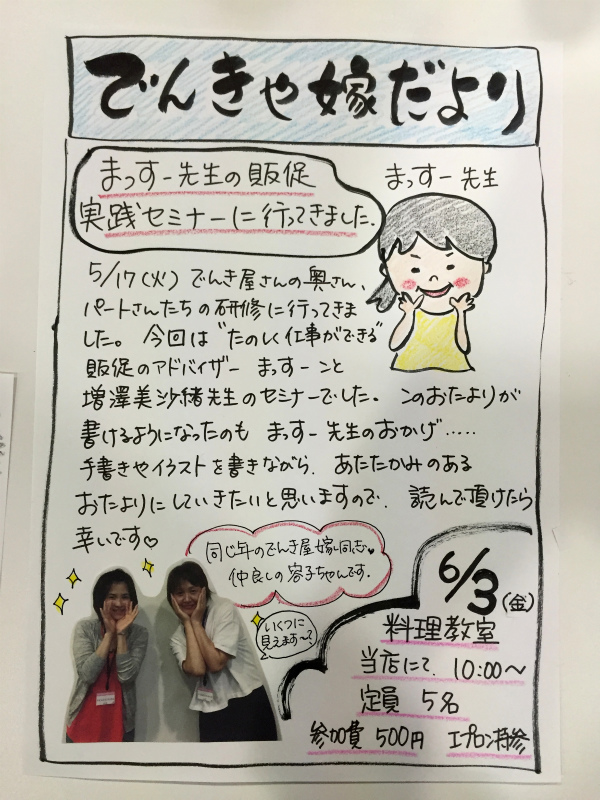 でんきや嫁だより
まっすー先生の販促
実践セミナーに行ってきました.
まっすー先生
5/17(火) でんき屋さんの奥さん、
パートさんたちの研修に行ってきま
した。今回は"たのしく仕事ができる"
販促のアドバイザー まっすーこと
増澤美沙緒先生のセミナーでした。このおたよりが
書けるようになったのも まっすー先生のおかげ.....
手書きやイラストを書きながら. あたたかみのある
おたよりにしていきたいと思いますので. 読んで頂けたら
幸いです♡
同じ年のでんき屋嫁同志♥
仲良しの容子ちゃんです.
いくつに
見えます〜?
6/3(金)
料理教室
当店にて. 10:00〜
定員 5名
参加費 500円 エプロン持参